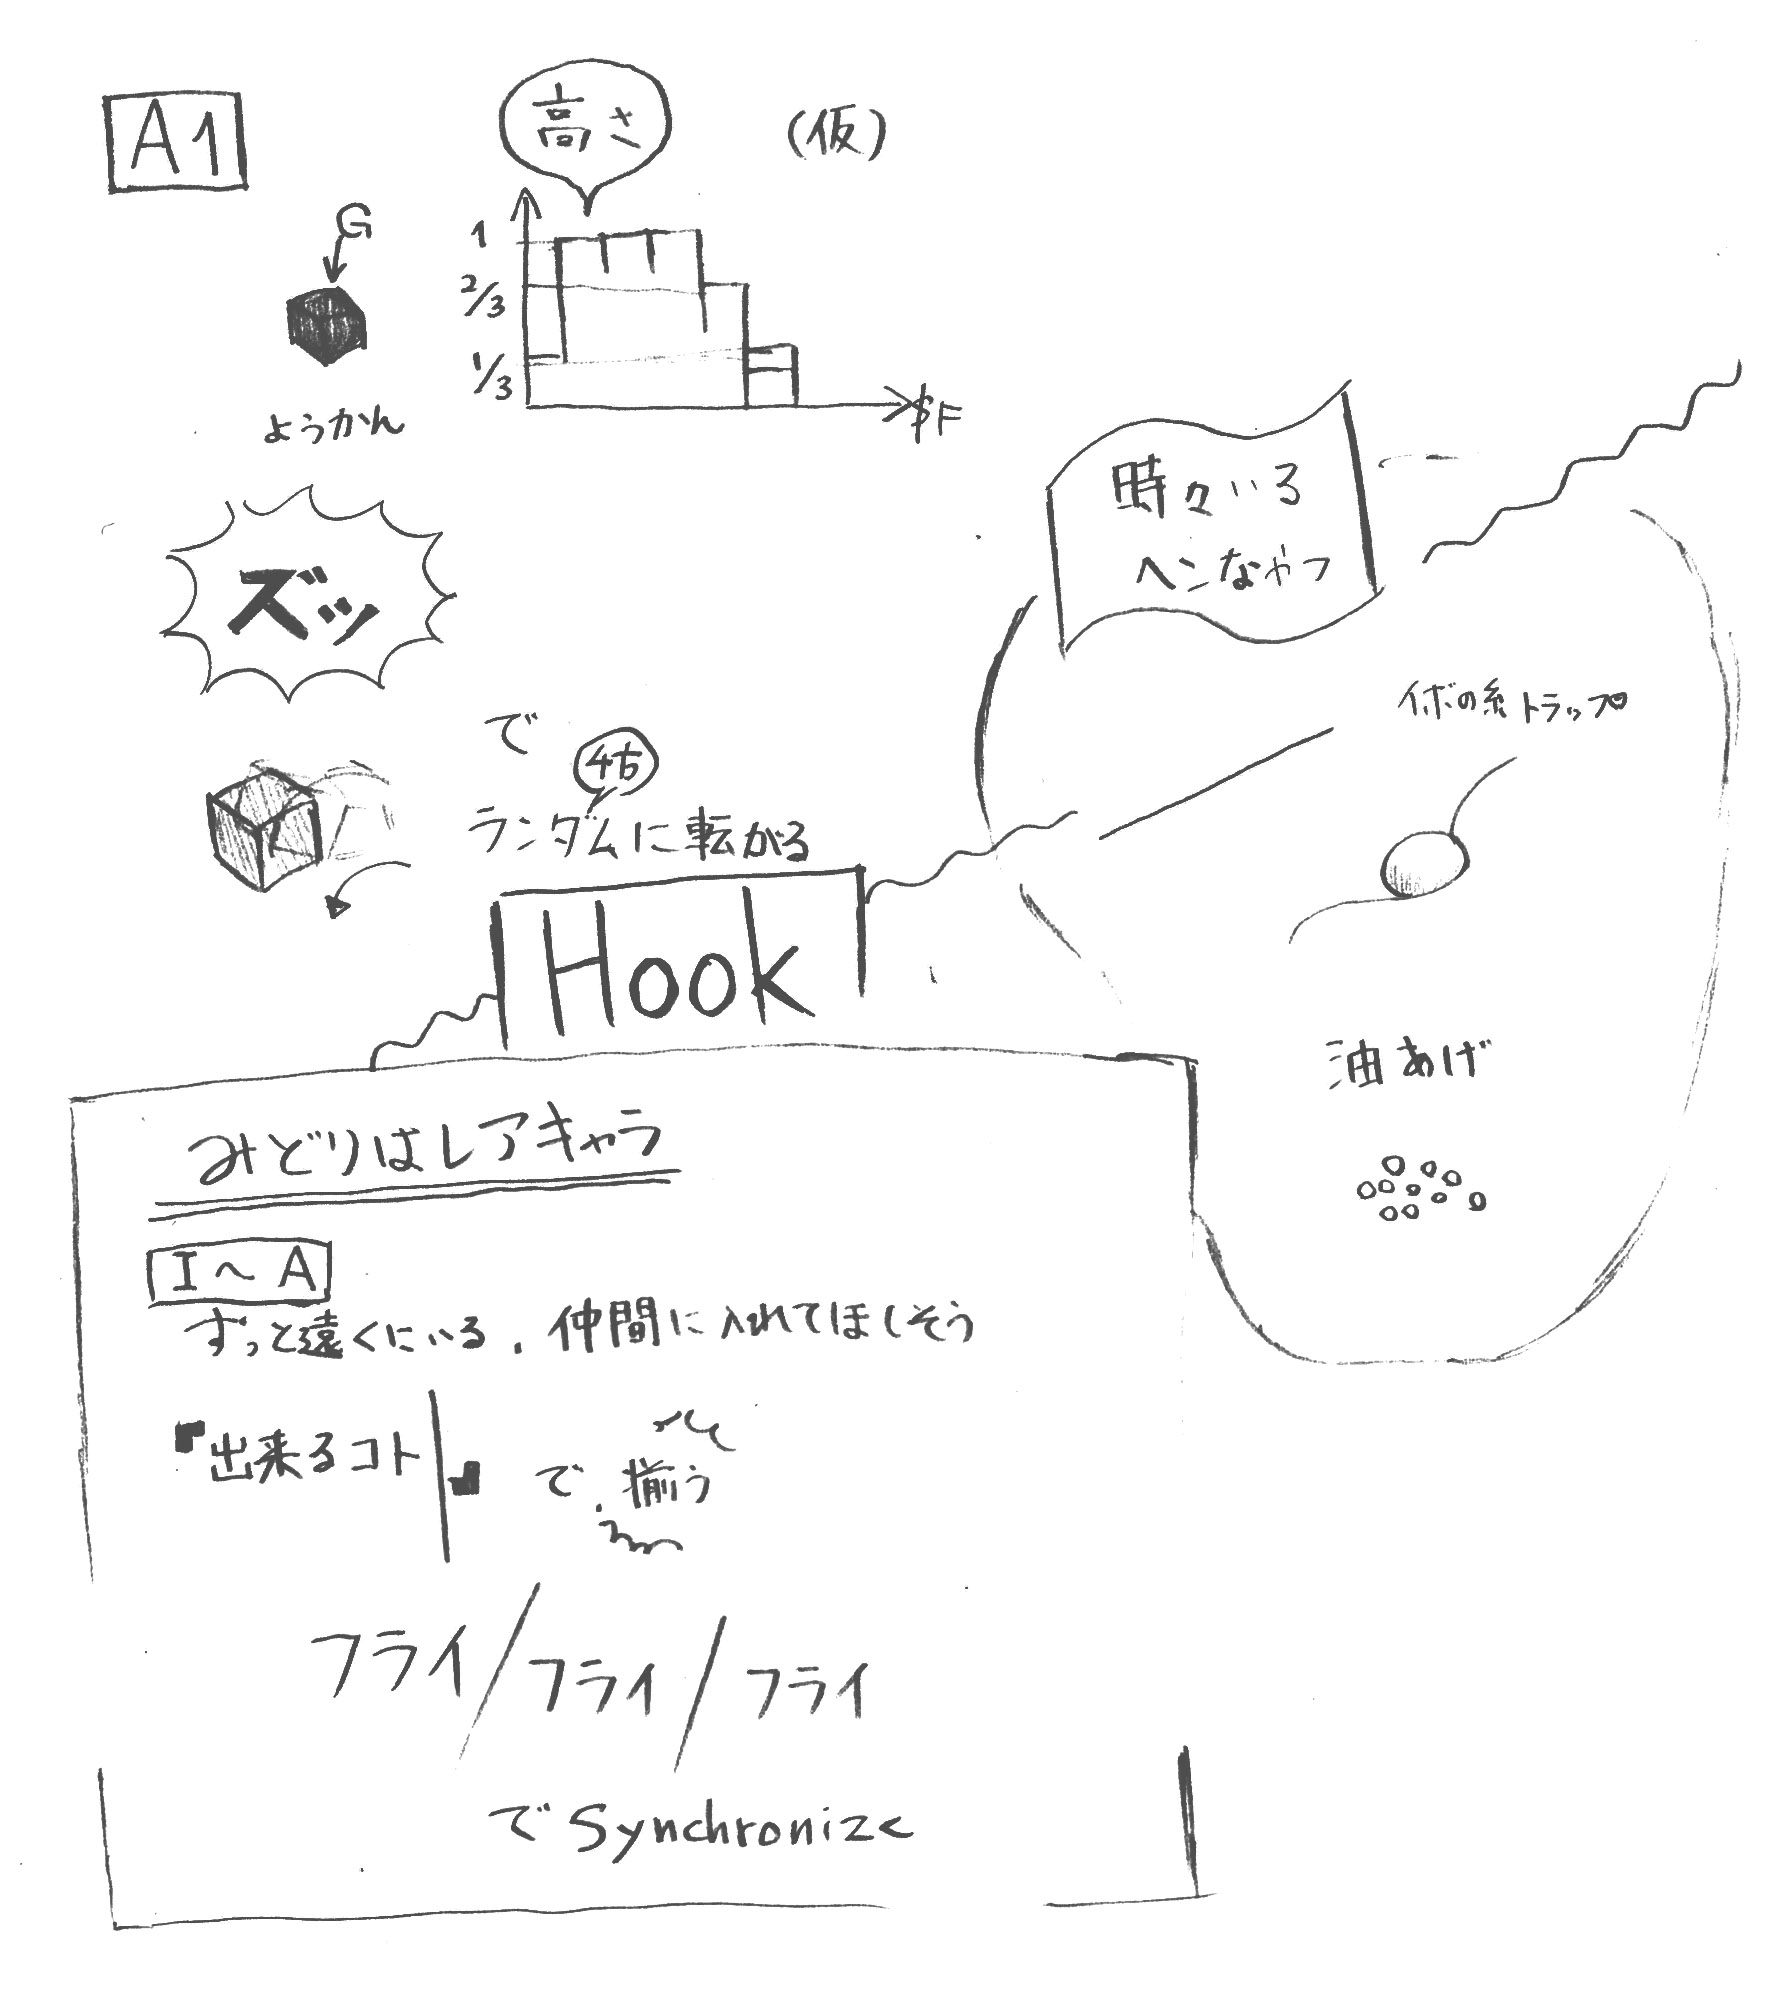 A1
高さ
(仮)
G
1
2/3
1/3
$F
ようかん
時々いる
ヘンなやつ
ズッ
イボの糸トラップ
で
4方
ランダムに転がる
Hook
油あげ
みどりはレアキャラ
I〜A
ずっと遠くにいる. 仲間に入れてほしそう
「出来るコト」で、揃う
フライ/フライ/フライ
でSynchronize